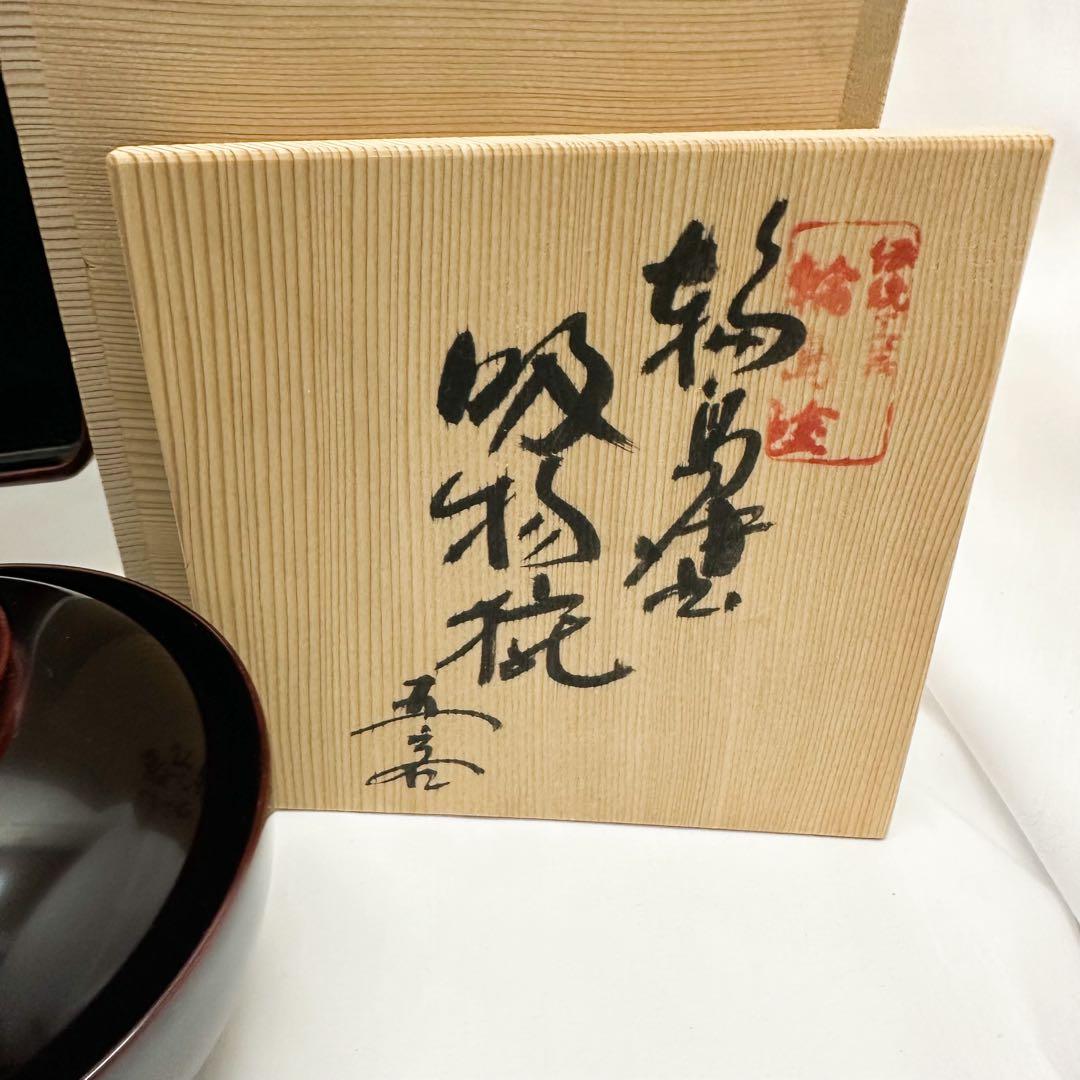 伝統工芸
輪島塗
輪島塗
吸物椀
五客